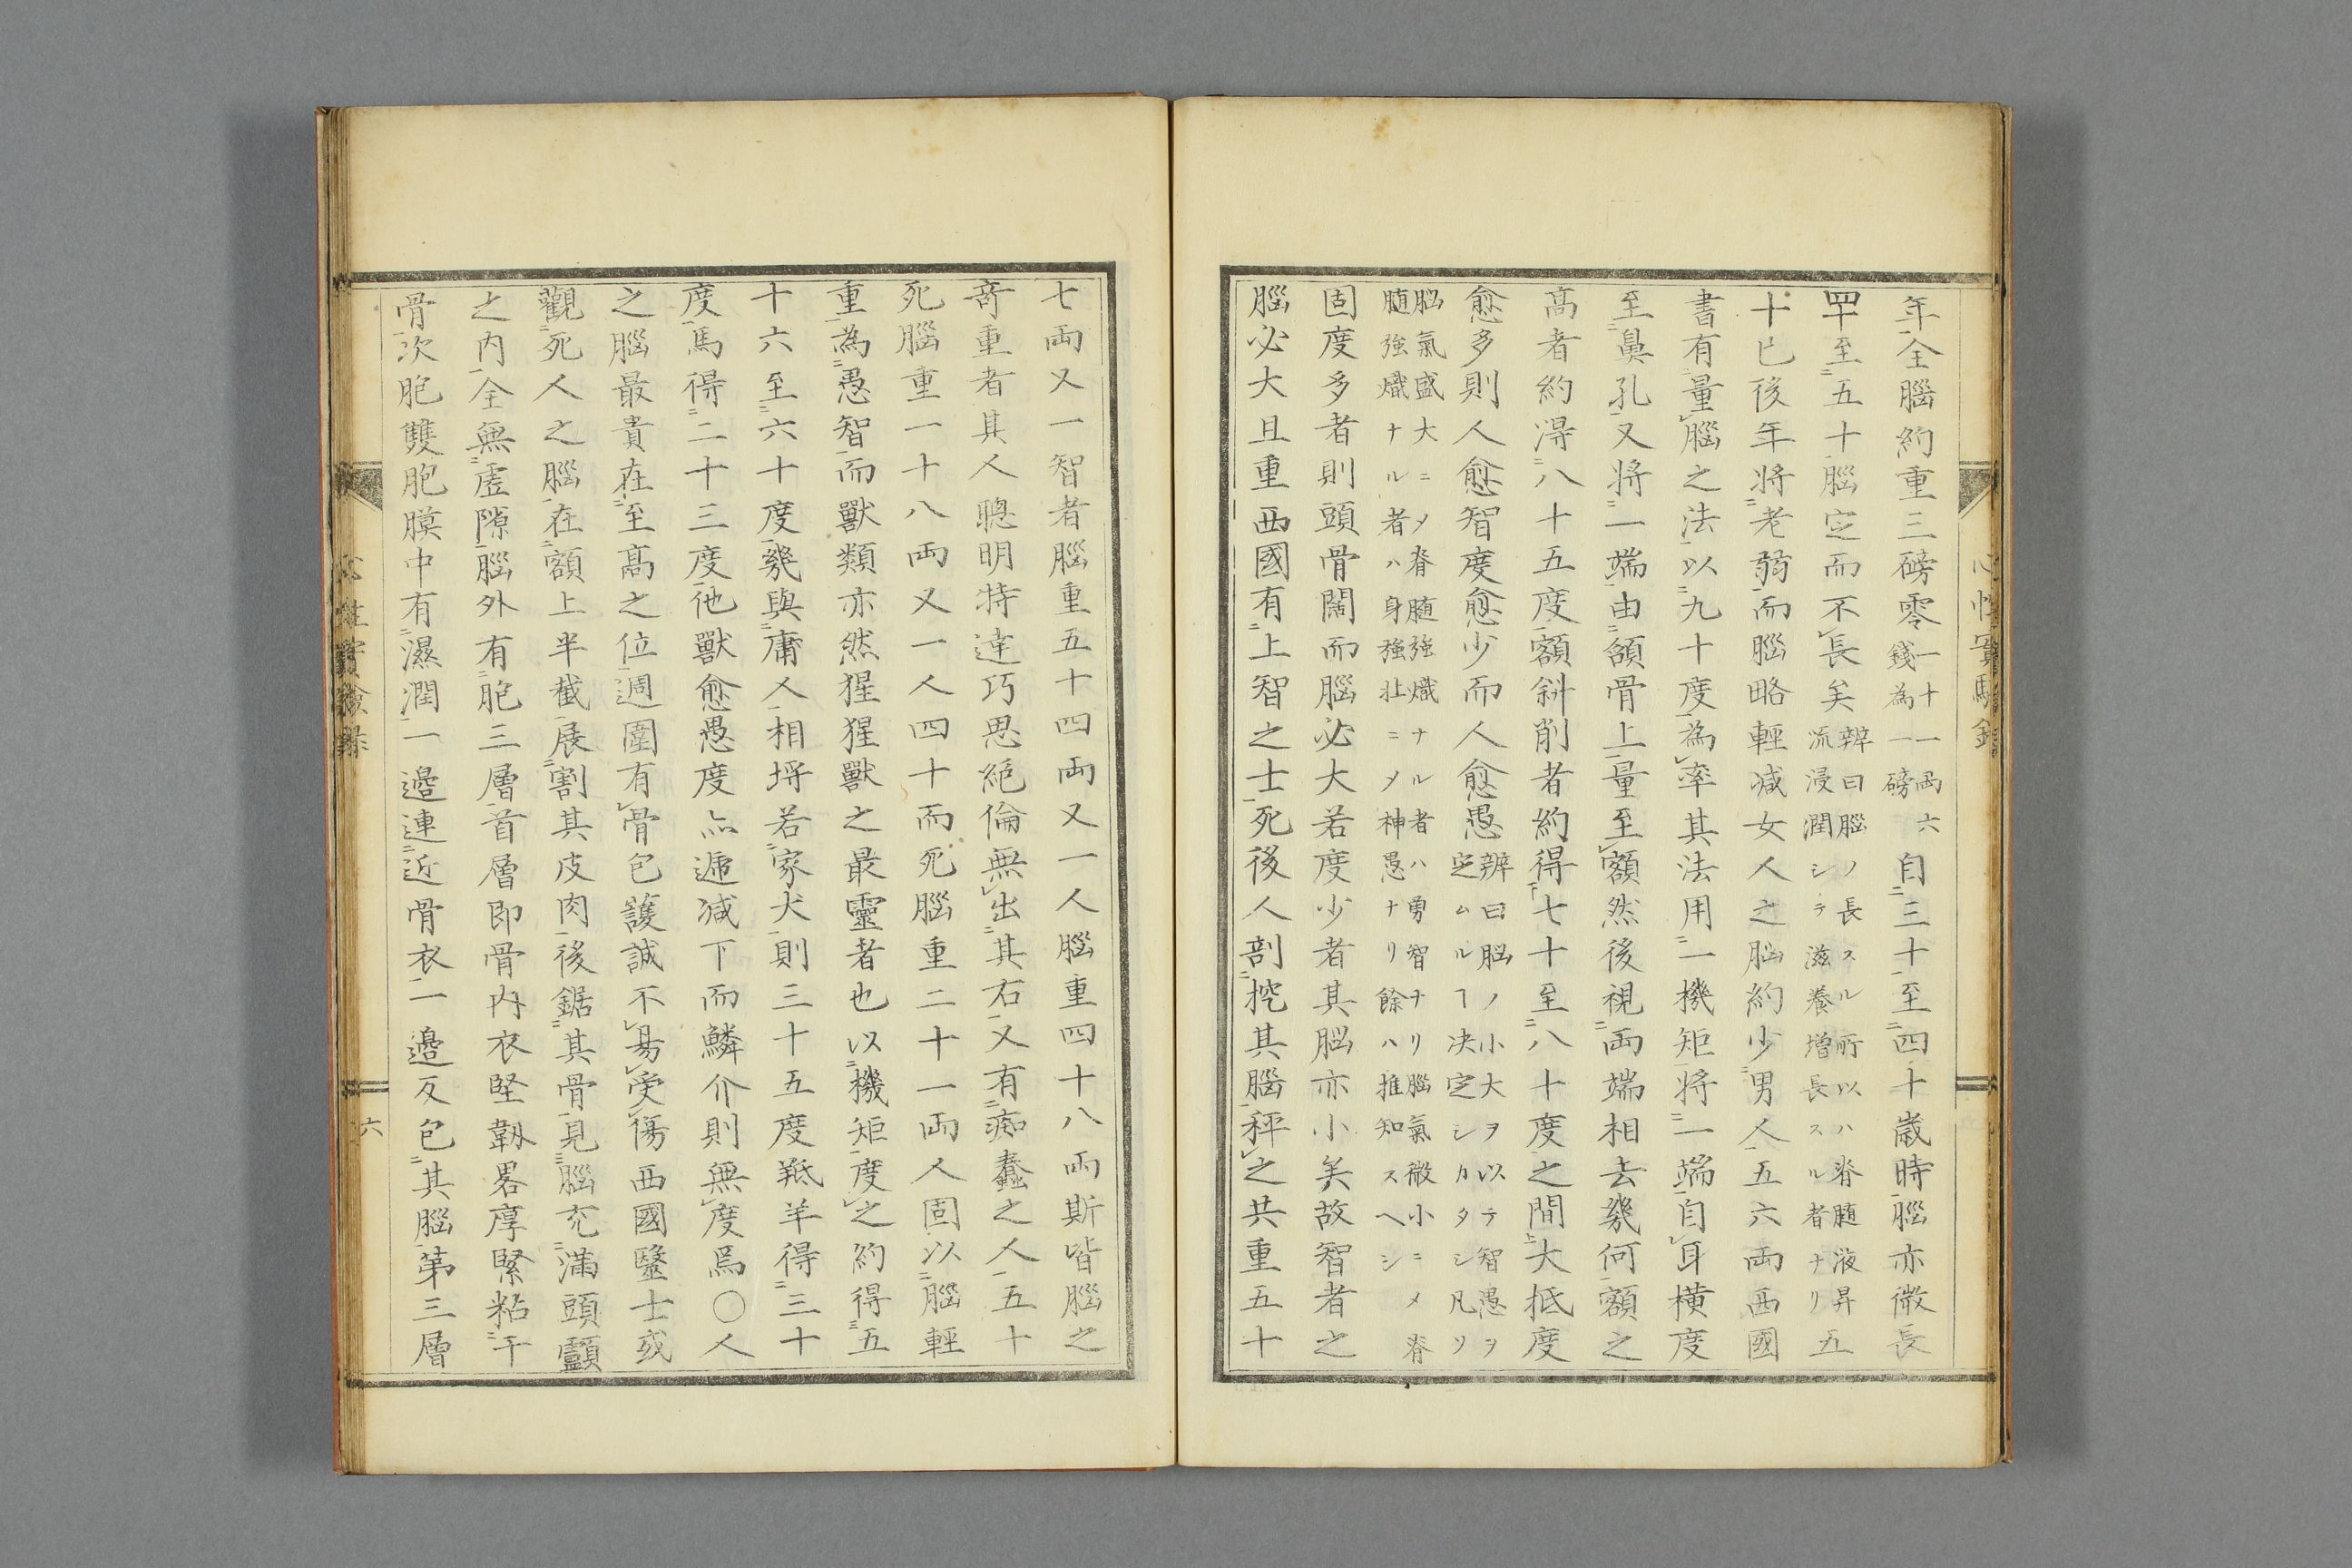 年全腦約重三磅零一十一両六錢為一磅自三十至四十歳時腦亦微長
罕至五十腦定而不長矣辨曰腦ノ長スル所以ハ脊髄液昇流浸潤シテ滋養増長スル者ナリ五
十已後年將老弱而腦略輕減女人之脳約少男人五六両西國
書有量腦之法以九十度為率其法用一機矩將一端自耳横度
至鼻孔又将一端由頷骨上量至額然後視両端相去幾何額之
高者約得八十五度額斜削者約得七十至八十度之間大抵度
愈多則人愈智度愈少而人愈愚辨曰脳ノ小大ヲ以テ智愚ヲ定ムルヿ决定シカタシ凡リ
脳氣盛大ニメ脊髄強熾ナル者ハ勇智ナリ腦氣微小ニメ脊髄強熾ナル者ハ身強壮ニメ神愚ナリ餘ハ推知スヘシ
固度多者則頭骨闊而腦必大若度少者其脳亦小矣故智者之
腦必大且重西國有上智之士死後人剖挖其腦秤之共重五十
七両又一智者腦重五十四両又一人腦重四十八両斯皆腦之
奇重者其人聰明特達巧思絶倫無出其右又有痴蠢之人五十
死腦重一十八両又一人四十而死腦重二十一両人固以腦輕
重為愚智而獸類亦然猩猩獸之最靈者也以機矩度之約得五
十六至六十度幾與庸人相埒若家犬則三十五度羝羊得三十
度馬得二十三度他獸愈愚度亦遞减下而鱗介則無度焉〇人
之腦最貴在至髙之位週圍有骨包護誠不易受傷西國醫士或
觀死人之腦在額上半截展割其皮肉後鋸其骨見腦充滿頭顱
之内全無虚隙腦外有胞三層首層即骨内衣堅韌畧厚緊粘于
骨次胞雙胞膜中有濕潤一邉連近骨衣一邉反包其腦第三層
心性實驗録
六